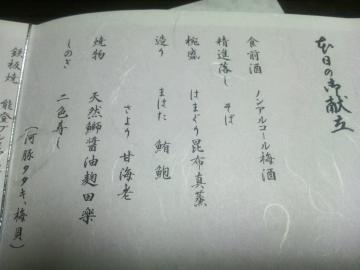 本日の御献立
食前酒 ノンアルコール梅酒
精進落し そば
椀盛 はまぐり昆布真蒸
造り まはた 鮪 鮑
さより 甘海老
焼物 天然鰤醤油麹田楽
しのぎ 二色寿し
鉄板焼 能登
(河豚タタキ、梅貝)